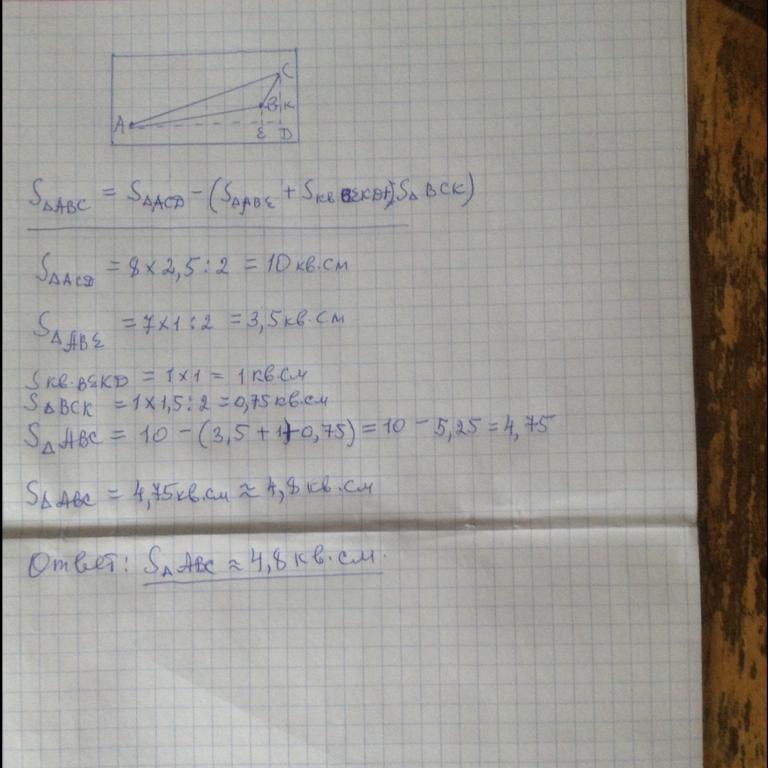 C
A
B K
E D
S△ABC = S△ACD - (S△ABE + Sкв BEKD + S△BCK)
S△ACD = 8 × 2,5 : 2 = 10 кв.см
S△ABE = 7 × 1 : 2 = 3,5 кв.см
Sкв.BEKD = 1 × 1 = 1 кв.см
S△BCK = 1 × 1,5 : 2 = 0,75 кв.см
S△ABC = 10 - (3,5 + 1 + 0,75) = 10 - 5,25 = 4,75
S△ABC = 4,75 кв.см ≈ 4,8 кв.см
Ответ: S△ABC ≈ 4,8 кв.см.